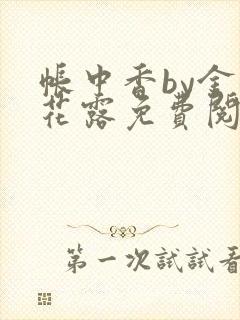 帳中香by金
花露免費閱
第一次試試看